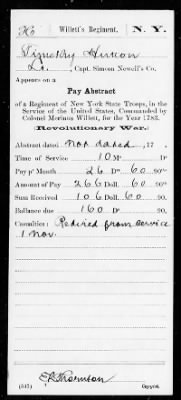 H | Willett's Regiment. | N. Y.
Timothy Hutton
Lt., Capt. Simeon Newell's Co.
Appears on a
Pay Abstract
of a Regiment of New York State Troops, in the
Service of the United States, Commanded by
Colonel Marinus Willett, for the Year 1783.
Revolutionary War.
Abstract dated Not dated, 17 .
Time of Service 10 Mo. Ds.
Pay pr Month 26 Ds. 60 90ths
Amount of Pay 266 Doll. 60 90ths
Sum Received 106 Doll. 60 90.
Ballance due 160 Ds. 90.
Casualties: Retired from service
1 Nov.
Thornton
Copyist.